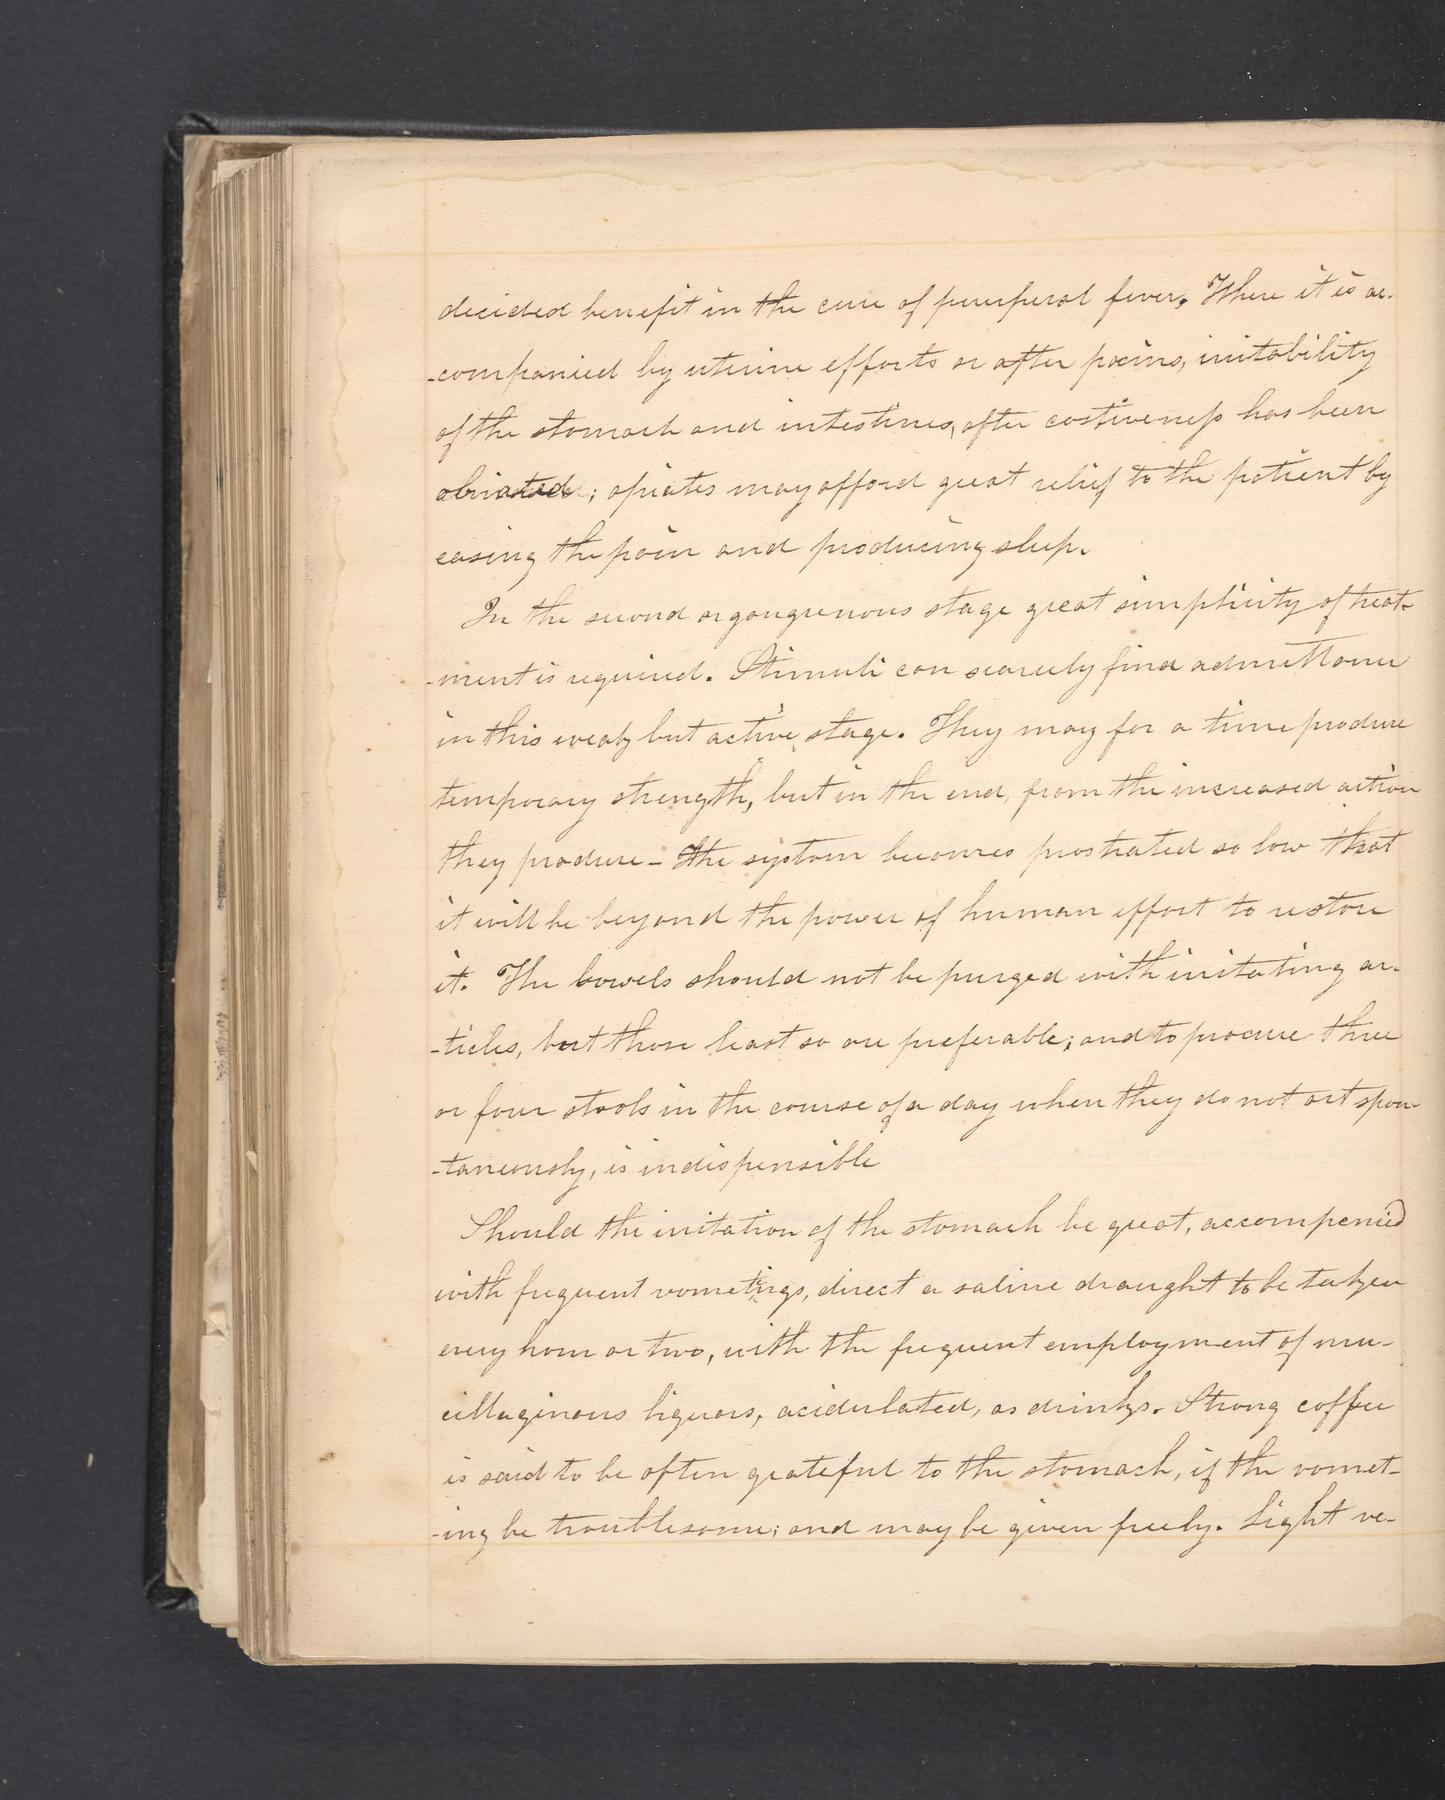 decided benefit in the cure of puerperal fever. Where it is ac-
-companied by uterine efforts or after pains, irritability
of the stomach and intestines, after costiveness has been
obviated; opiates may afford great relief to the patient by
easing the pain and producing sleep.
In the second or gangrenous stage great simplicity of treat-
-ment is required. Stimuli can scarcely find admittance
in this weak but active stage. They may for a time produce
temporary strength, but in the end, from the increased action
they produce - the system becomes prostrated so low that
it will be beyond the power of human effort to restore
it. The bowels should not be purged with irritating ar-
-ticles, but those least so are preferable; and to procure three
or four stools in the course of a day when they do not act spon-
-taneously, is indispensible
Should the irritation of the stomach be great, accompenied
with frequent vometings, direct a saline draught to be taken
every hour or two, with the frequent employment of mu-
cillaginous liquors, acidulated, as drinks. Strong coffee
is said to be often grateful to the stomach, if the vomet-
-ing be troublesome; and may be given freely. Light ve-